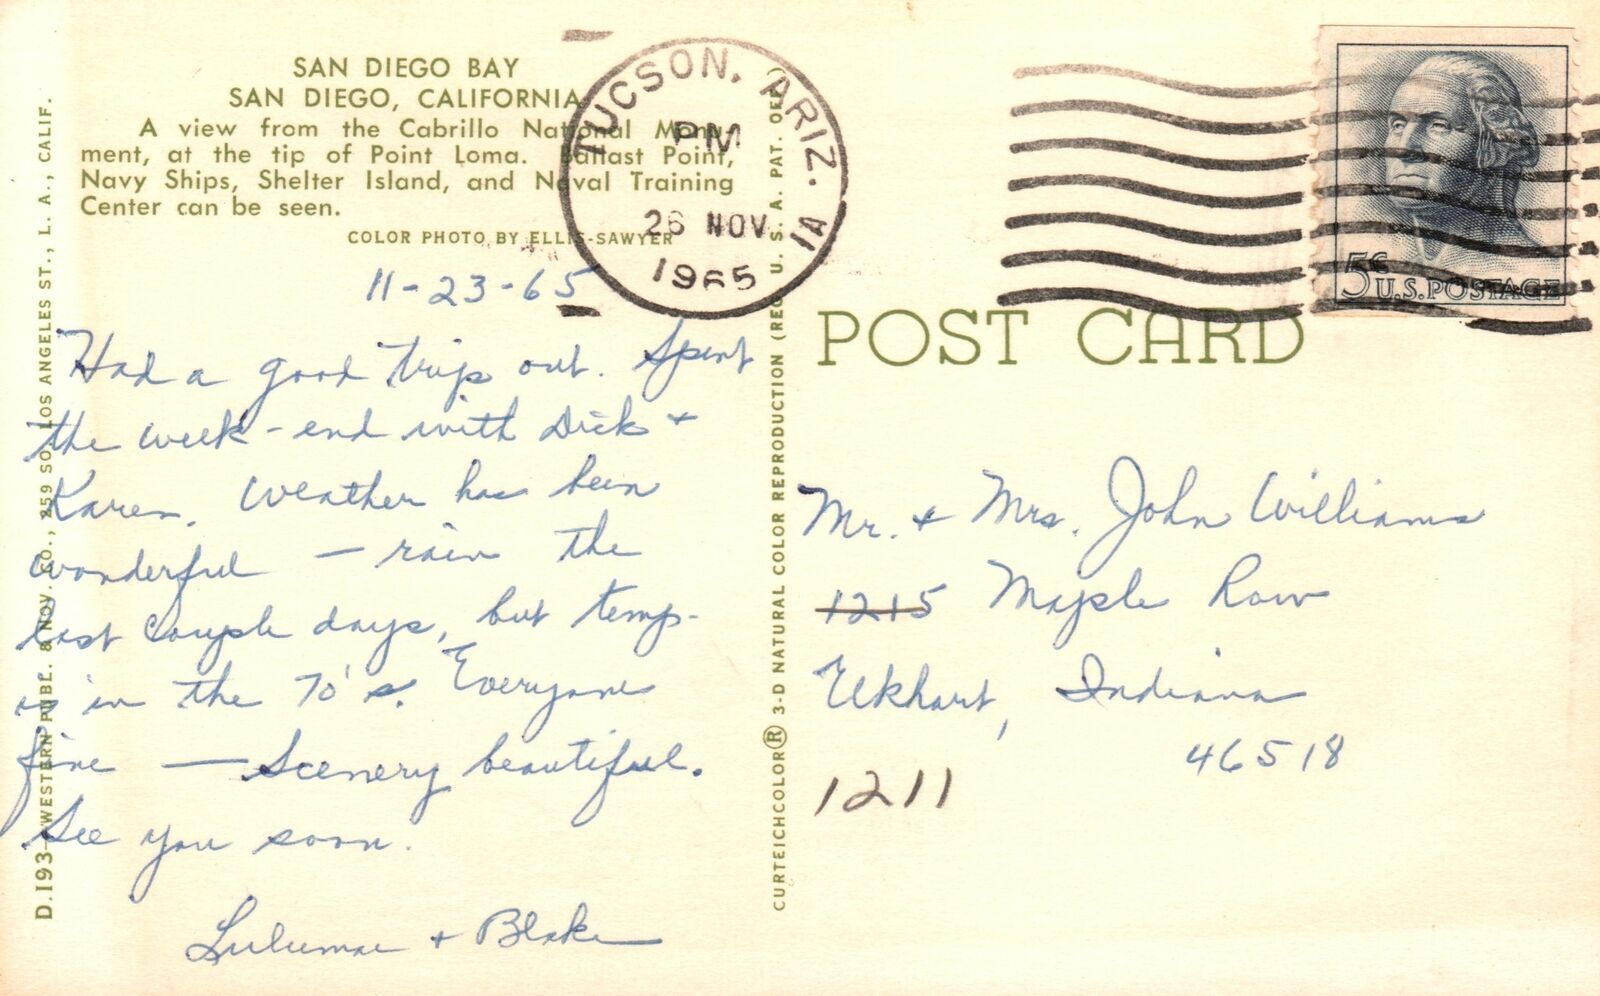 SAN DIEGO BAY
SAN DIEGO, CALIFORNIA
A view from the Cabrillo National Monu-
ment, at the tip of Point Loma. Ballast Point,
Navy Ships, Shelter Island, and Naval Training
Center can be seen.
COLOR PHOTO BY ELLIS-SAWYER
11-23-65
Had a good trip out. Spent
the week-end with Dick +
Karen. Weather has been
wonderful — rain the
last couple days, but temp.
is in the 70's. Everyone
fine — Scenery beautiful.
See you soon.
Lulumae + Blake
D.193—WESTERN PUBL. & NOV. CO., 259 SO. LOS ANGELES ST., L. A., CALIF.
CURTEICHCOLOR® 3-D NATURAL COLOR REPRODUCTION (REG. U. S. A. PAT. OFF.)
TUCSON, ARIZ. 1A
PM
26 NOV
1965
5¢ U.S. POSTAGE
POST CARD
Mr. + Mrs. John Williams
1215 Maple Row
Elkhart, Indiana
46518
1211